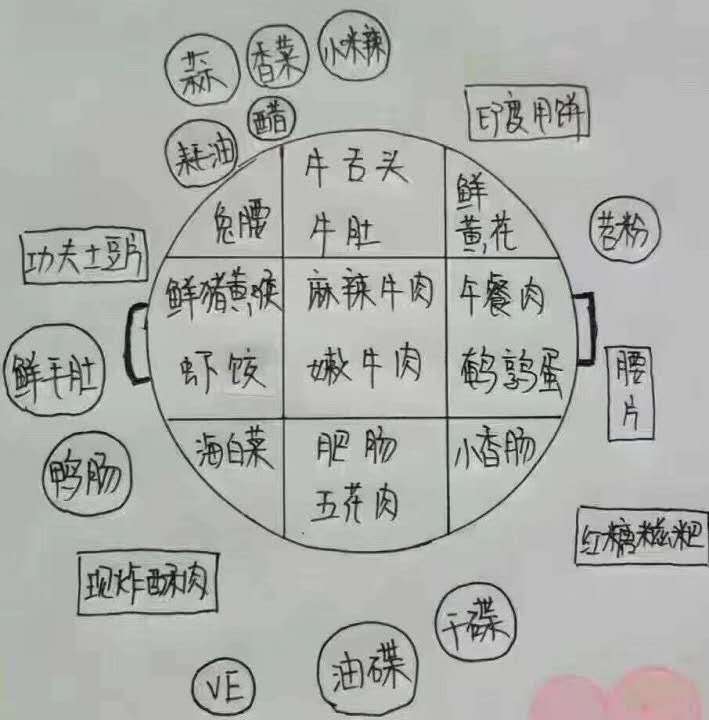 蒜
香菜
小米辣
醋
耗油
印度甩饼
牛舌头
鲜
黄花
兔腰
牛肚
苕粉
功夫土豆片
鲜猪黄喉
麻辣牛肉
午餐肉
虾饺
嫩牛肉
鹌鹑蛋
鲜毛肚
腰
片
鸭肠
海白菜
肥肠
小香肠
五花肉
红糖糍粑
现炸酥肉
干碟
油碟
VE